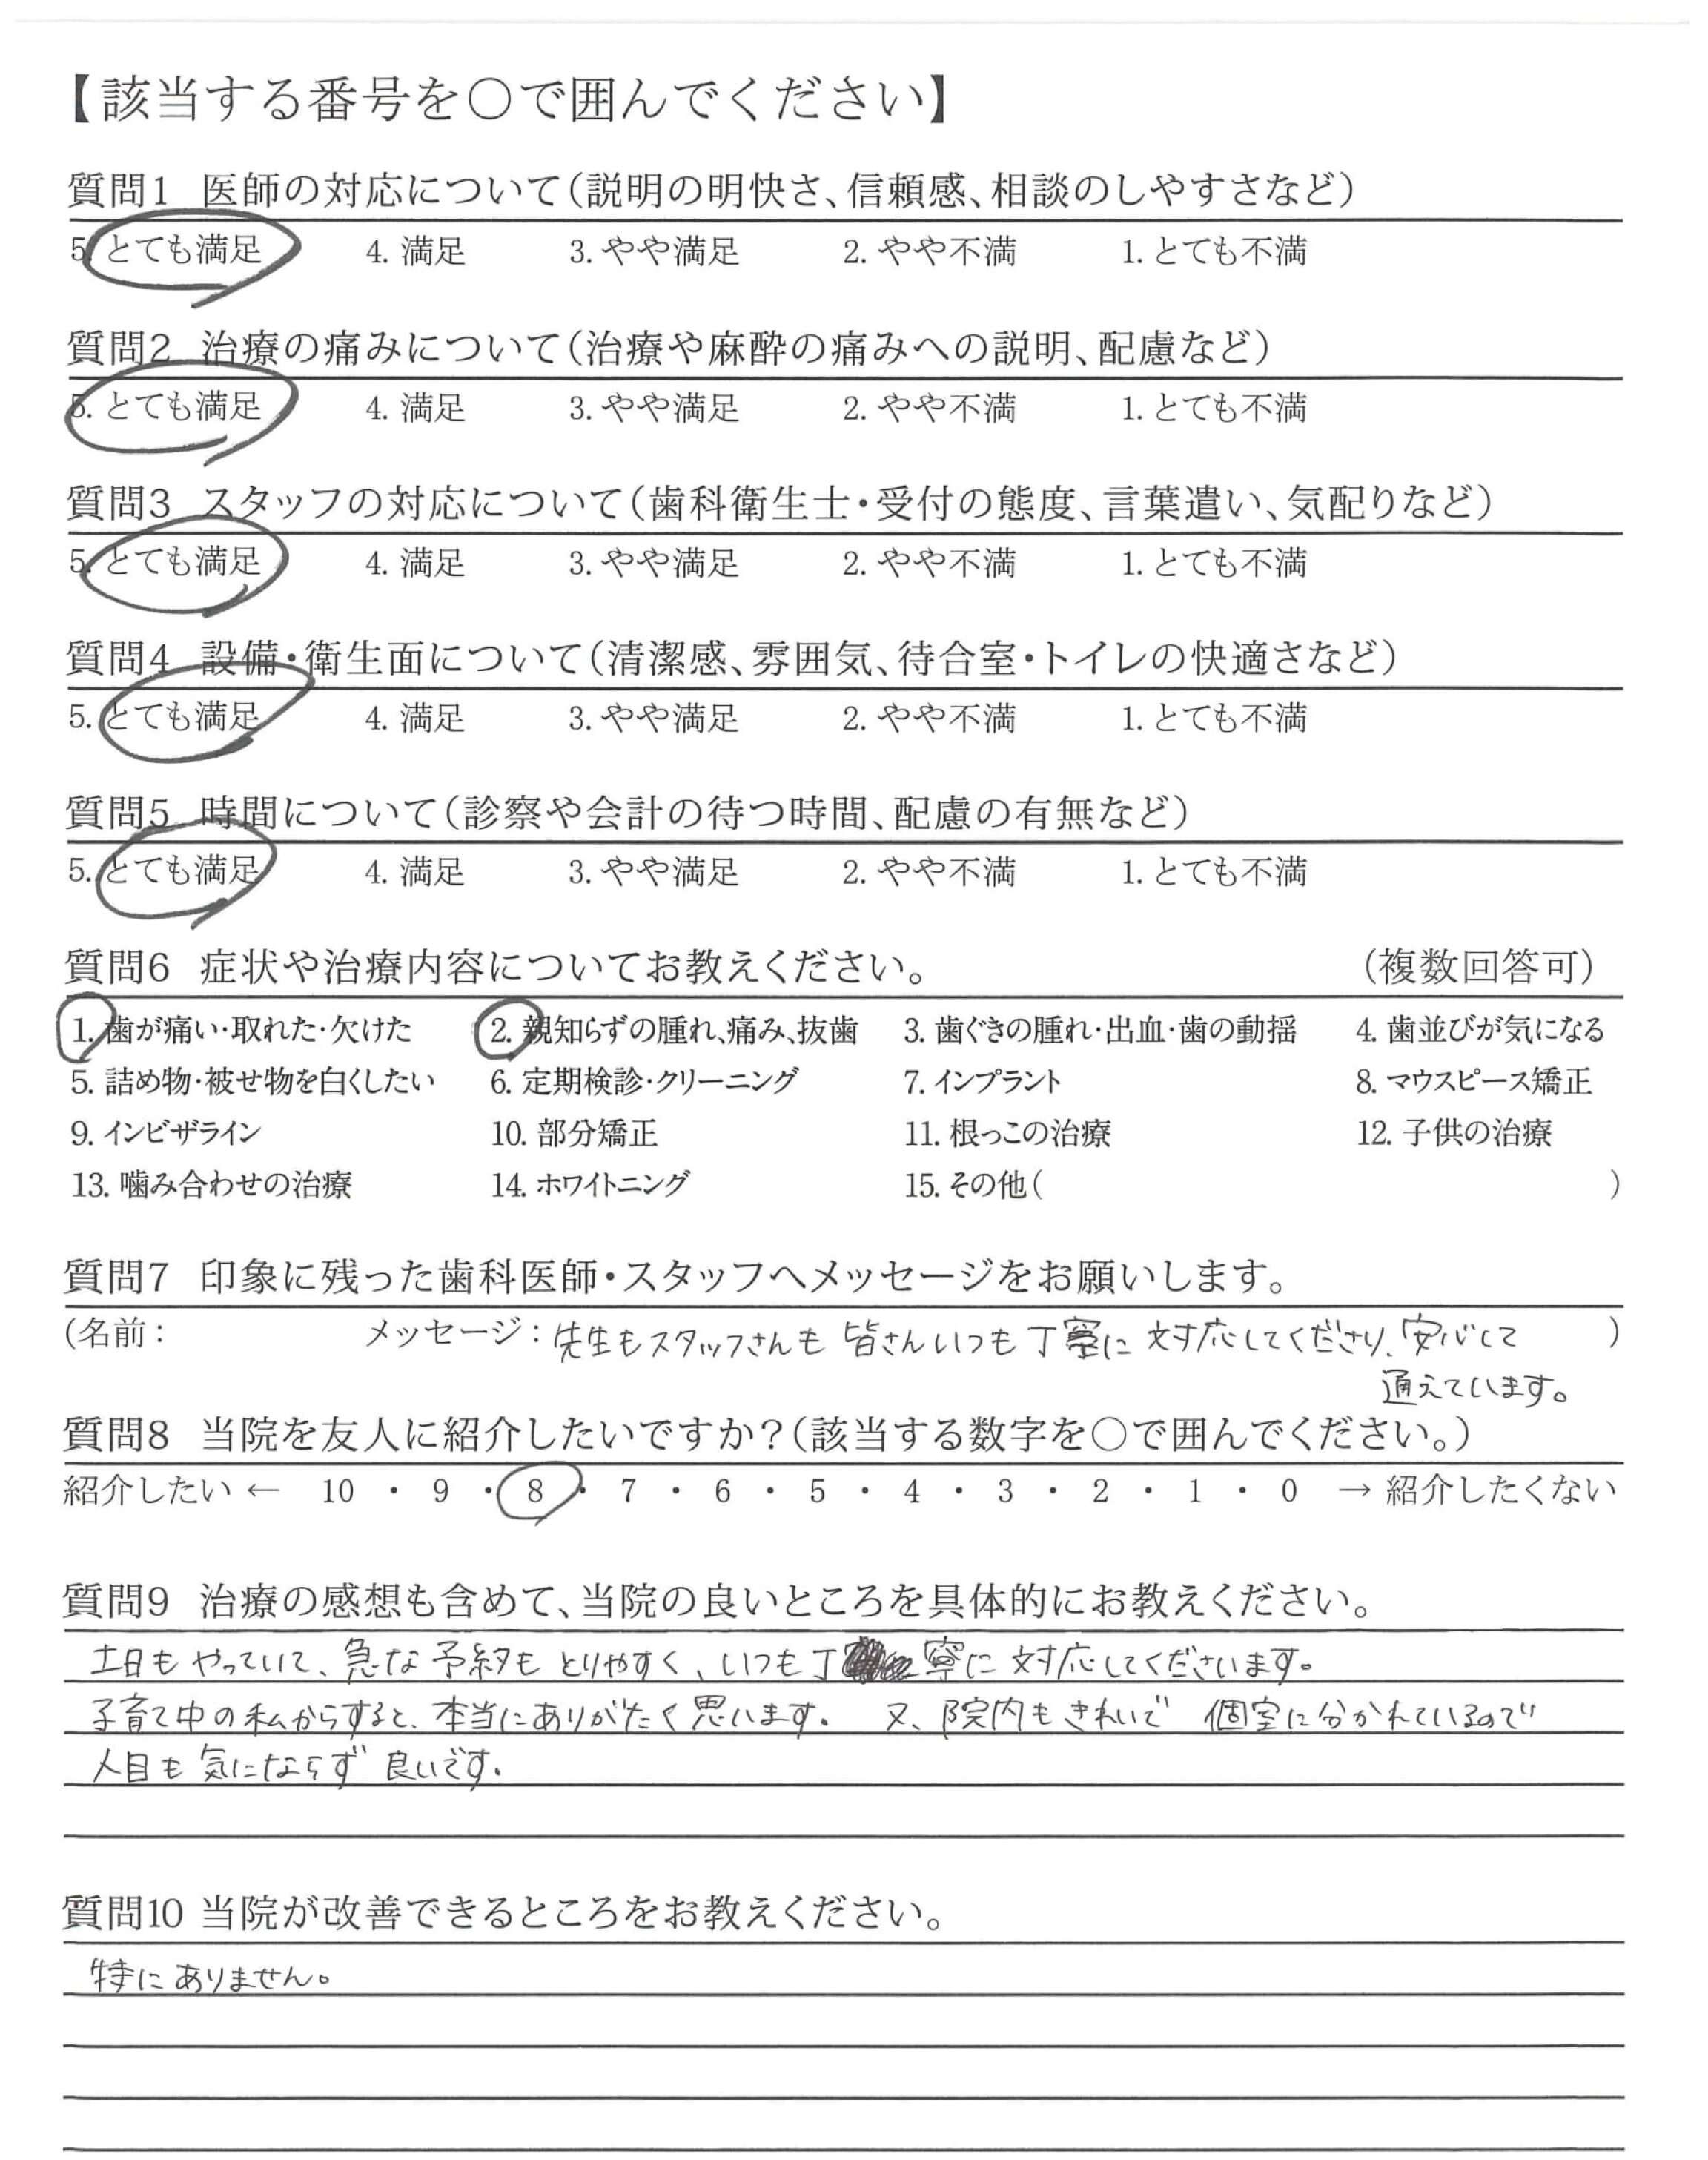 【該当する番号を○で囲んでください】
質問1 医師の対応について(説明の明快さ、信頼感、相談のしやすさなど)
5. とても満足 4. 満足 3. やや満足 2. やや不満 1. とても不満
質問2 治療の痛みについて(治療や麻酔の痛みへの説明、配慮など)
5. とても満足 4. 満足 3. やや満足 2. やや不満 1. とても不満
質問3 スタッフの対応について(歯科衛生士・受付の態度、言葉遣い、気配りなど)
5. とても満足 4. 満足 3. やや満足 2. やや不満 1. とても不満
質問4 設備・衛生面について(清潔感、雰囲気、待合室・トイレの快適さなど)
5. とても満足 4. 満足 3. やや満足 2. やや不満 1. とても不満
質問5 時間について(診察や会計の待つ時間、配慮の有無など)
5. とても満足 4. 満足 3. やや満足 2. やや不満 1. とても不満
質問6 症状や治療内容についてお教えください。 (複数回答可)
1. 歯が痛い・取れた・欠けた 2. 親知らずの腫れ、痛み、抜歯 3. 歯ぐきの腫れ・出血・歯の動揺 4. 歯並びが気になる
5. 詰め物・被せ物を白くしたい 6. 定期検診・クリーニング 7. インプラント 8. マウスピース矯正
9. インビザライン 10. 部分矯正 11. 根っこの治療 12. 子供の治療
13. 噛み合わせの治療 14. ホワイトニング 15. その他( )
質問7 印象に残った歯科医師・スタッフへメッセージをお願いします。
(名前: メッセージ:先生もスタッフさんも皆さんいつも丁寧に対応してくださり、安心して )
通えています。
質問8 当院を友人に紹介したいですか?(該当する数字を○で囲んでください。)
紹介したい ← 10 ・ 9 ・ 8 ・ 7 ・ 6 ・ 5 ・ 4 ・ 3 ・ 2 ・ 1 ・ 0 → 紹介したくない
質問9 治療の感想も含めて、当院の良いところを具体的にお教えください。
土日もやっていて、急な予約もとりやすく、いつも丁寧に対応してくださいます。
子育て中の私からすると、本当にありがたく思います。 又、院内もきれいで 個室に分かれているので
人目も気にならず良いです。
質問10 当院が改善できるところをお教えください。
特にありません。